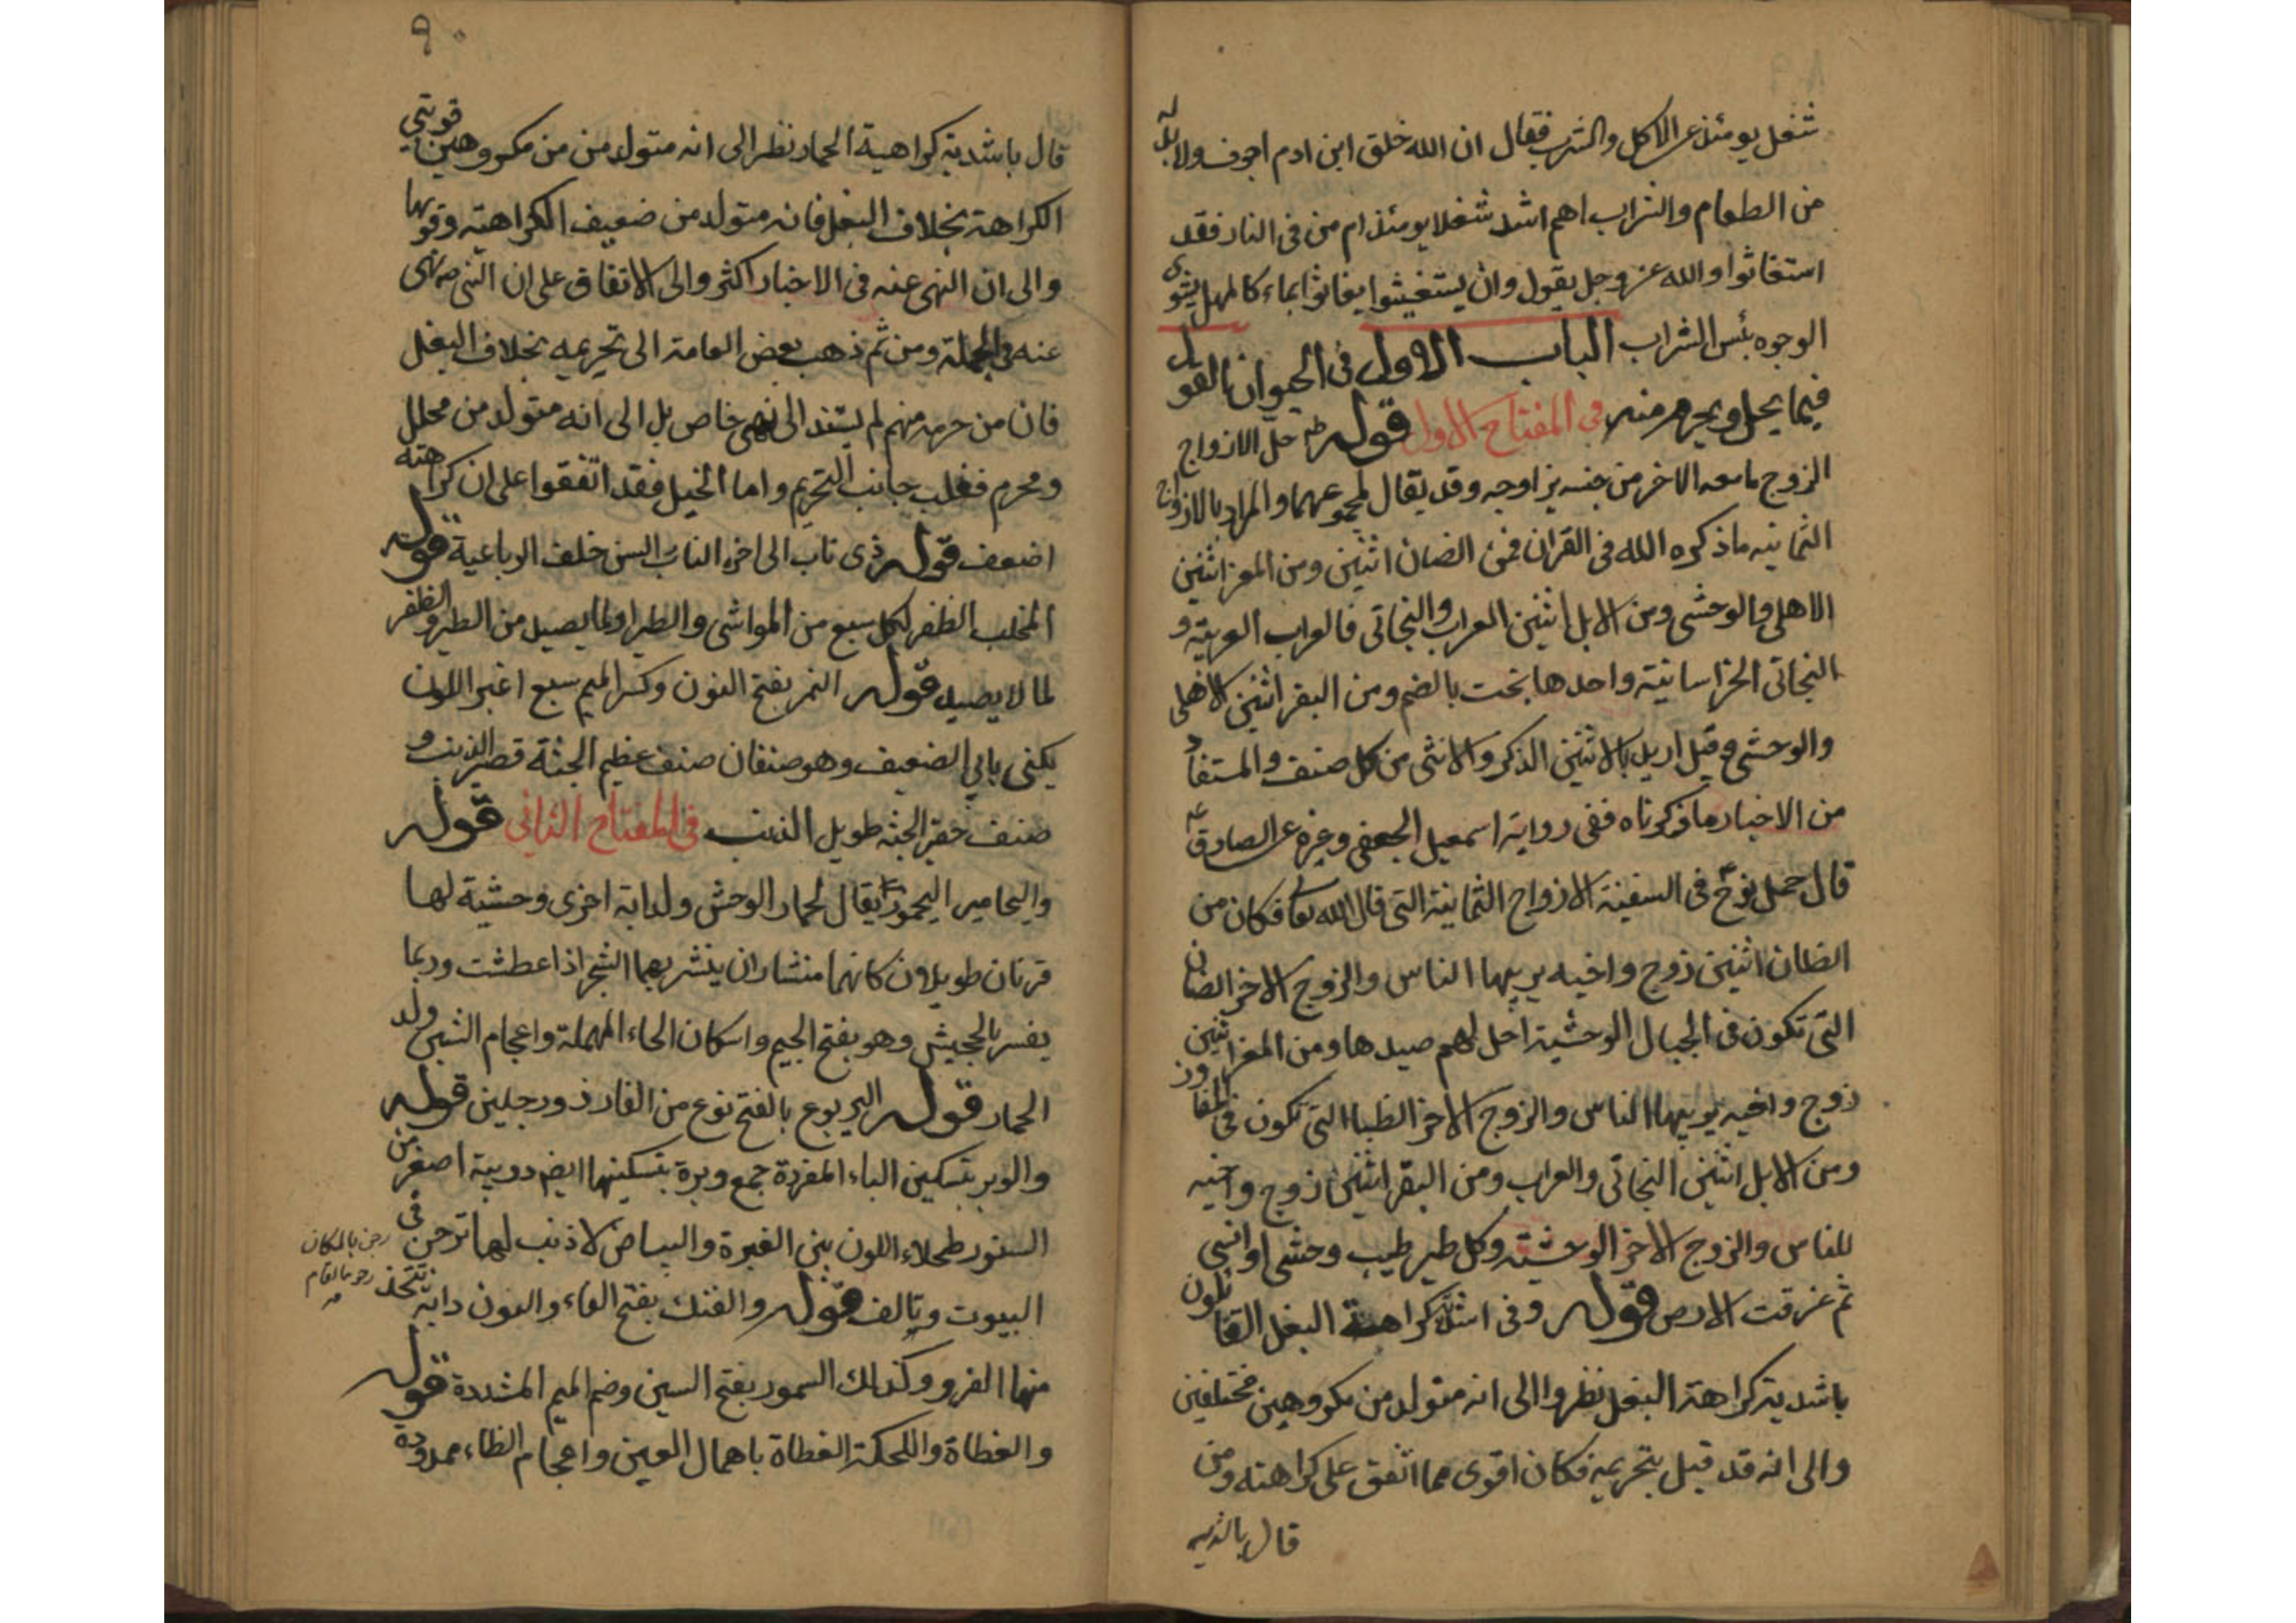 شغل يومئذ عن الاكل والشرب فقال ان الله خلق ابن ادم اجوف ولا بد له
من الطعام والشراب اهم اشد شغلا يومئذ ام من في النار فقد
استغاثوا والله عز وجل يقول وان يستغيثوا يغاثوا بماء كالمهل يشوى
الوجوه بئس الشراب الباب الاول في الحيوان القول
فيما يحل ويحرم منه في المفتاح الاول قوله حل الازواج
الزوج ما معه الاخر من جنسه يزاوجه وقد يقال لمجموعهما والمراد بالازواج
الثمانيه ما ذكره الله في القران فمن الضان اثنين ومن المعز اثنين
الاهلي والوحشي ومن الابل اثنين العراب والبخاتي فالعراب العربية و
البخاتي الخراسانية واحدها بخت بالضم ومن البقر اثنين الاهلي
والوحشي وقيل اريد بالاثنين الذكر والانثى من كل صنف والمستفاد
من الاخبار ما ذكرناه ففي رواية اسمعيل الجعفي وغيره عن الصادق ع
قال حمل نوح في السفينة الازواج الثمانية التي قال الله تعا فكان من
الضان اثنين زوج داخيه يربيها الناس والزوج الاخر الضان
التي تكون في الجبال الوحشية احل لهم صيدها ومن المعز اثنين
زوج داخيه يربيها الناس والزوج الاخر الظبا التي تكون في المفاوز
ومن الابل اثنين البخاتي والعراب ومن البقر اثنين زوج داخيه
للناس والزوج الاخر الوحشية وكل طير طيب وحشي او انسي
ثم غرقت الارض قوله وفي اشدية كراهة البغل القائلون
باشدية كراهة البغل نظروا الى انه متولد من مكروهين مختلفين
والى انه قد قيل بتحريمه فكان اقوى مما اتفق على كراهته ومن
قال باشديه
٩٠
قال باشدية كراهية الحمار نظر الى انه متولد من من مكروهين قويتي
الكراهة بخلاف البغل فانه متولد من ضعيف الكراهية وقويها
والى ان النهي عنه في الاخبار اكثر والى الاتفاق على ان النبي ص نهى
عنه في الجملة ومن ثم ذهب بعض العامة الى تحريمه بخلاف البغل
فان من حرمه منهم لم يستند الى نهي خاص بل الى انه متولد من محلل
ومحرم فغلب جانب التحريم واما الخيل فقد اتفقوا على ان كراهته
اضعف قوله ذى ناب الى اخره الناب السن خلف الرباعية قوله
المخلب الظفر لكل سبع من المواشي والطير او لما يصيد من الطير والظفر
لما لا يصيد قوله النمر بفتح النون وكسر الميم سبع اغبر اللون
يكنى بابي الضعيف وهو صنفان صنف عظيم الجثة قصير الذنب و
صنف حقير الجثه طويل الذنب في المفتاح الثاني قوله
واليحامير اليحمور يقال لحمار الوحش ولدابة اخرى وحشية لها
قرنان طويلان كانهما منشاران ينشر بهما الشجر اذا عطشت وربما
يفسر بالجحش وهو بفتح الجيم واسكان الحاء المهملة واعجام الشين ولد
الحمار قوله اليربوع بالفتح نوع من الفار ذو رجلين قوله
والوبر بتسكين الباء المفردة جمع وبرة بتسكينها ايضا دويبة اصغر من
السنور طحلاء اللون بين الغبرة والبياض لا ذنب لها ترجن في
رجن بالمكان
البيوت وتالف قوله والفنك بفتح الفاء والنون دابة تتخذ
منها الفرو وكذلك السمور بفتح السين وضم الميم المشددة قوله
والعظاة واللحكة العظاة باهمال العين واعجام الظاء ممدودة